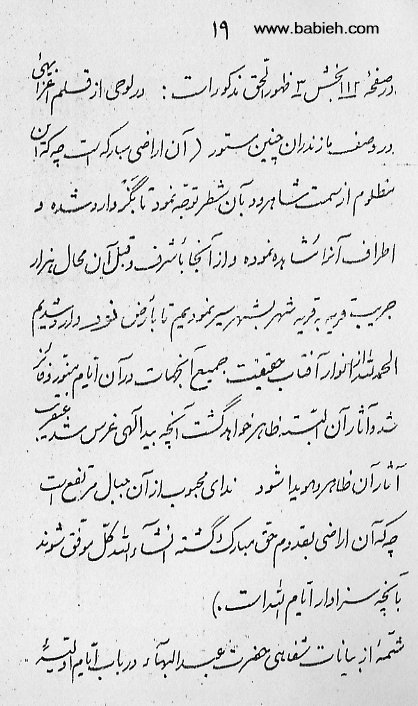 ۱۹
www.babieh.com
در صفحهٔ ۱۱۲ بخش ۳ ظهور الحق مذکور است : در لوحی از قلم اعزّ ابهی
در وصف مازندران چنین مسطور ( آن اراضی مبارکه است چه که این
مظلوم از سمت شاهرود بآن شطر توجّه نمود تا بگز وارد شده و
اطراف آنرا مشاهده نموده و از آنجا باشرف و قبل آن محال هزار
جریب قریه بقریه شهر بشهر سیر نمودیم تا بارض نور وارد شدیم
الحمد لله از انوار آفتاب حقیقت جمیع آنجهات در آن ایّام منوّر و فائز
شد و آثار آن البتّه ظاهر خواهد گشت آنچه بید الهی غرس شد عنقریب
آثار آن ظاهر و هویدا شود ندای محبوب از آن جبال مرتفع است
چه که آن اراضی بقدوم حق مبارک گشته انشاء الله کل موفّق شوند
بآنچه سزاوار ایّام الله است .)
شمّهٔ از بیانات شفاهی حضرت عبد البهآء در باب ایّام اوّلیّهٔ